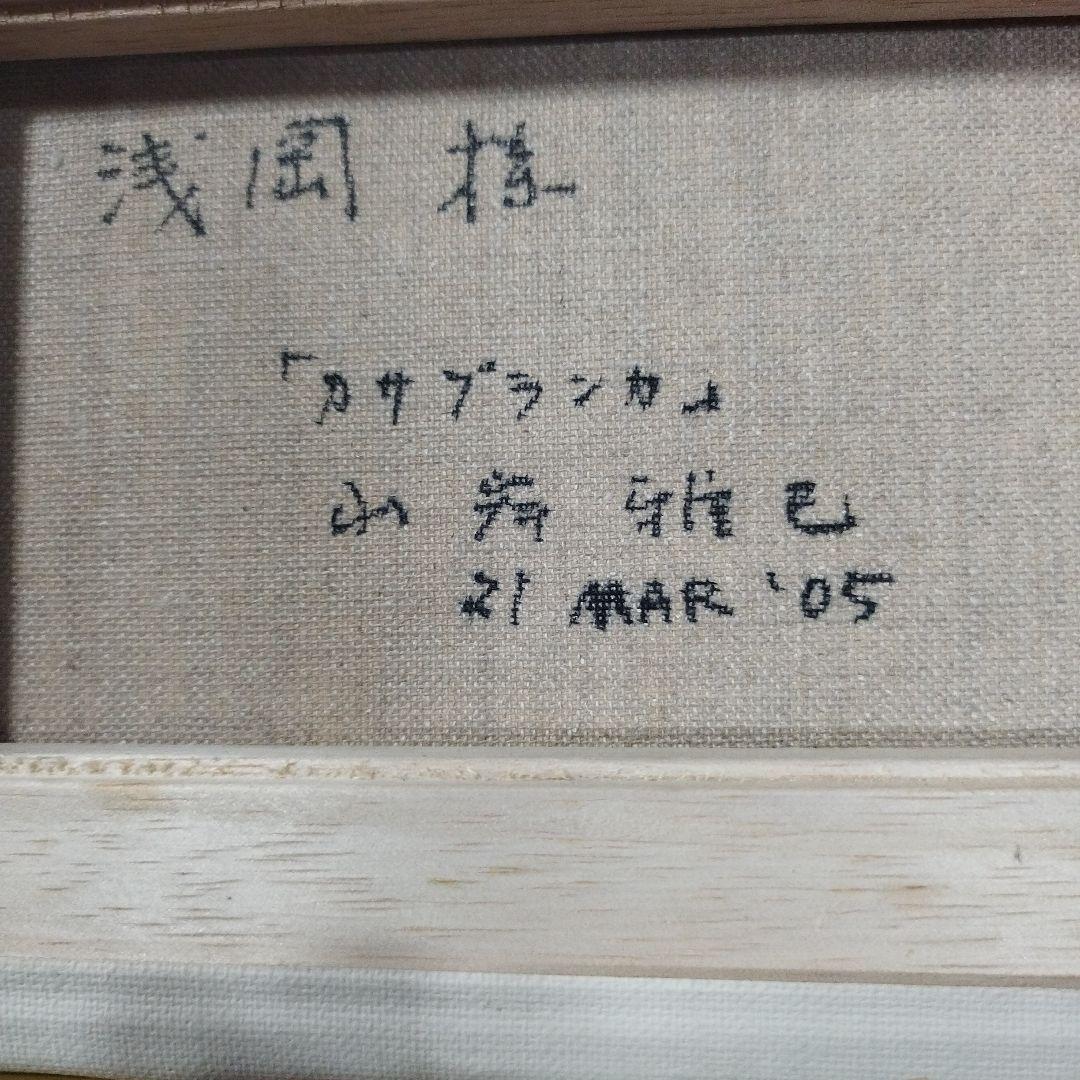 浅岡 様
「カサブランカ」
山寿 雅巳
21 MAR '05